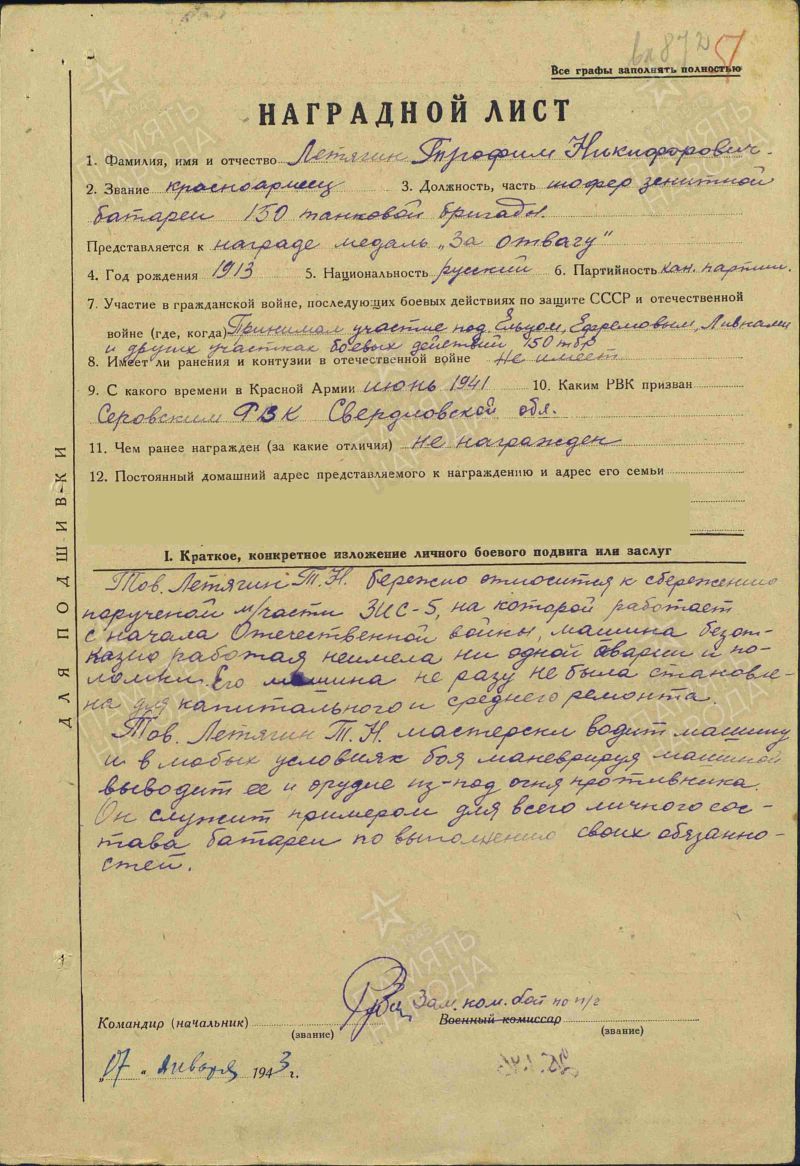 вх 872
Все графы заполнять полностью
НАГРАДНОЙ ЛИСТ
1. Фамилия, имя и отчество Летягин Трофим Никифорович.
2. Звание красноармеец 3. Должность, часть шофер зенитной
батареи 150 танковой бригады.
Представляется к награде медаль „За отвагу"
4. Год рождения 1913 5. Национальность русский 6. Партийность кан. партии.
7. Участие в гражданской войне, последующих боевых действиях по защите СССР и отечественной
войне (где, когда) Принимал участие под Ельцом, Ефремовым, Ливнами
и других участках боевых действий 150 тбр
8. Имеет ли ранения и контузии в отечественной войне Не имеет
9. С какого времени в Красной Армии июнь 1941 10. Каким РВК призван
Серовским РВК Свердловской обл.
11. Чем ранее награжден (за какие отличия) не награжден
12. Постоянный домашний адрес представляемого к награждению и адрес его семьи
I. Краткое, конкретное изложение личного боевого подвига или заслуг
Тов. Летягин Т.Н. бережно относится к сбережению
порученой м/части ЗИС-5, на которой работает
с начала Отечественной войны, машина безот-
казно работая неимела ни одной аварии и по-
ломки. Его машина не разу не была становле-
на для капитального и среднего ремонта.
Тов. Летягин Т.Н. мастерски водит машину
и в любых условиях боя маневрируя машиной
выводит ее и орудие из-под огня противника.
Он служит примером для всего личного сос-
тава батареи по выполнению своих обязанно-
стей.
Зам. ком. бат по п/ч
Командир (начальник) Военный комиссар
(звание) (звание)
„17" января 1943 г.
ДЛЯ ПОДШИВКИ
ПАМЯТЬ НАРОДА